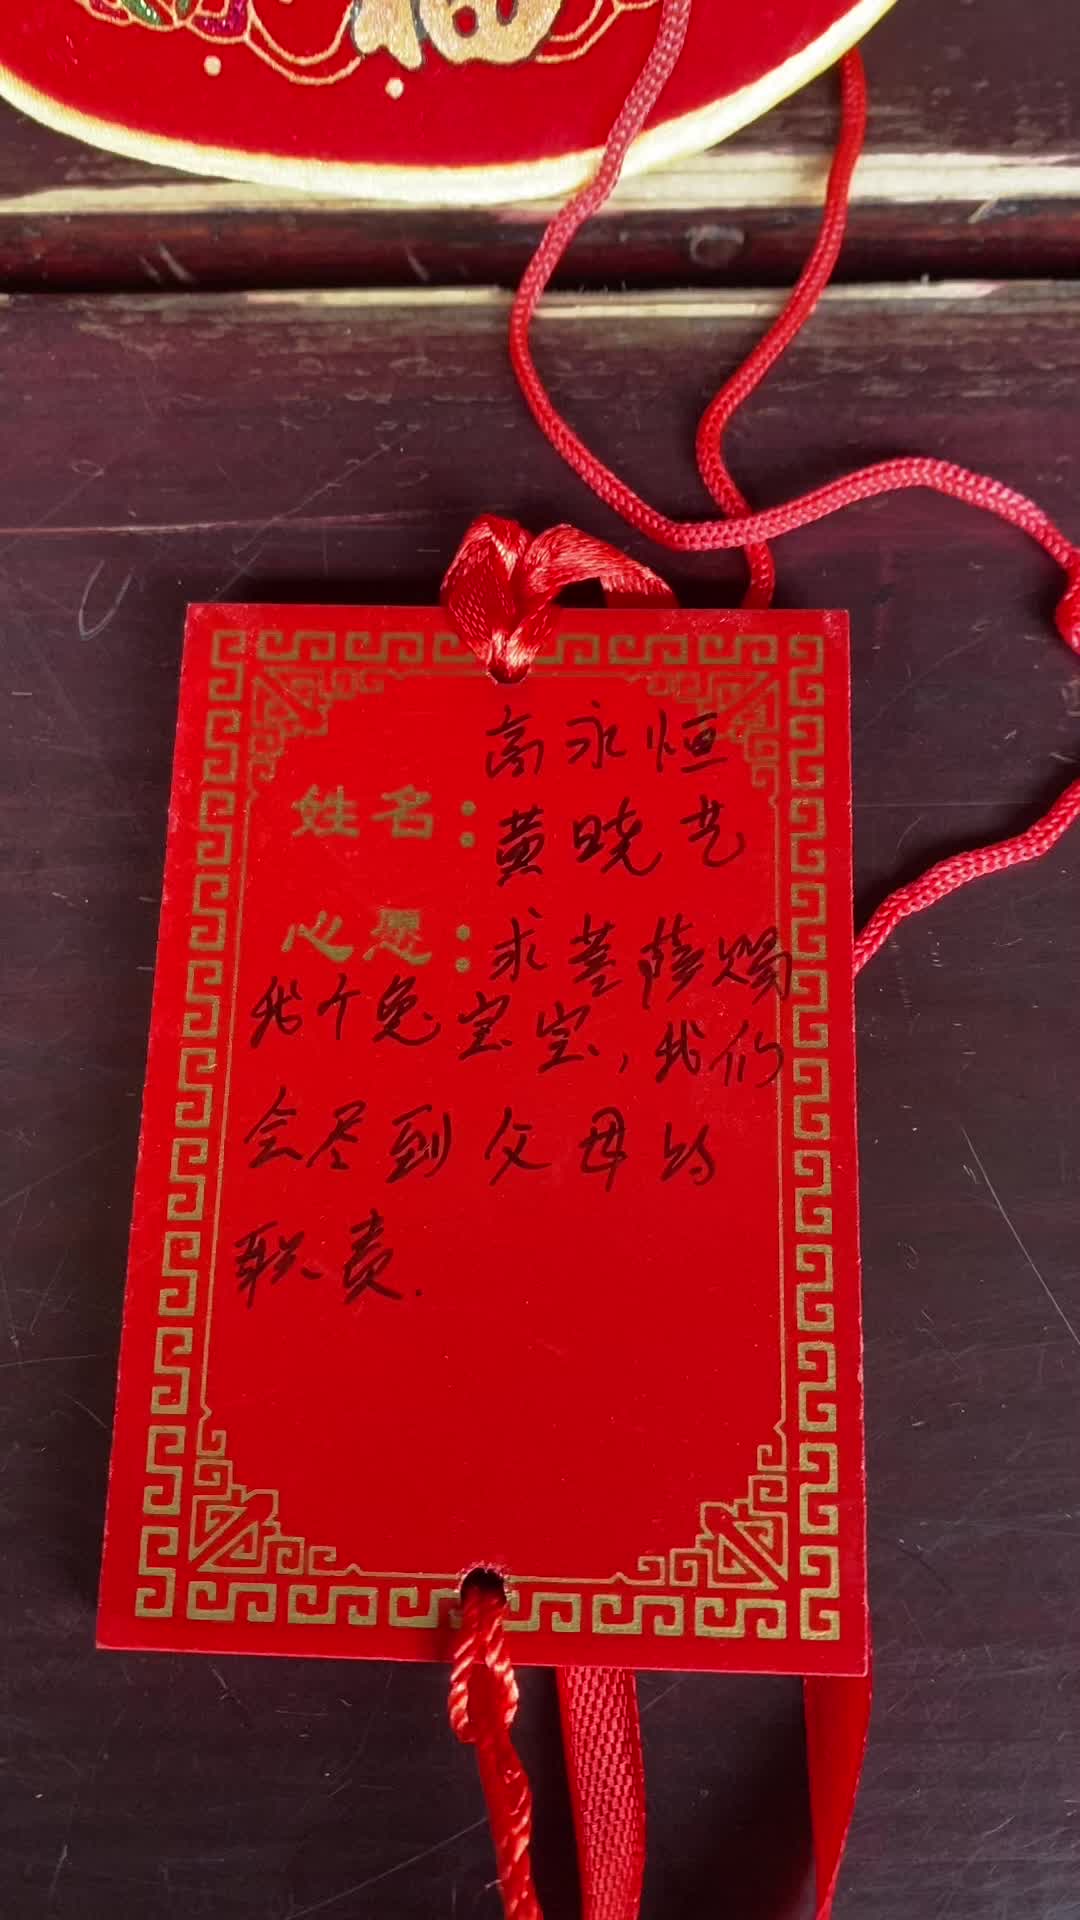 福
高永恒
姓名：黄晓艺
心愿：求菩萨赐
我个兔宝宝，我们
会尽到父母的
职责.